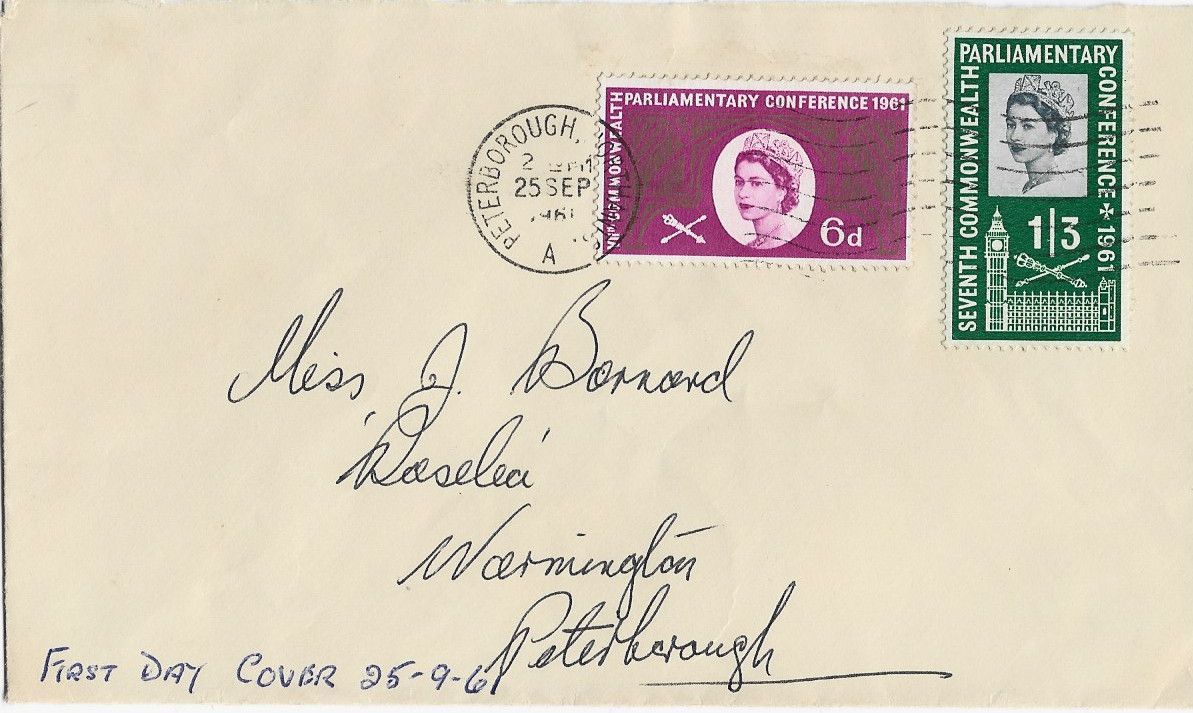 PETERBOROUGH,
25 SEP
1961
A
VIIth COMMONWEALTH
PARLIAMENTARY CONFERENCE 1961
6d
SEVENTH COMMONWEALTH
PARLIAMENTARY
CONFERENCE ✠ 1961
1/3
Miss J. Barnard
'Roselea'
Warmington
Peterborough
FIRST DAY COVER 25-9-61